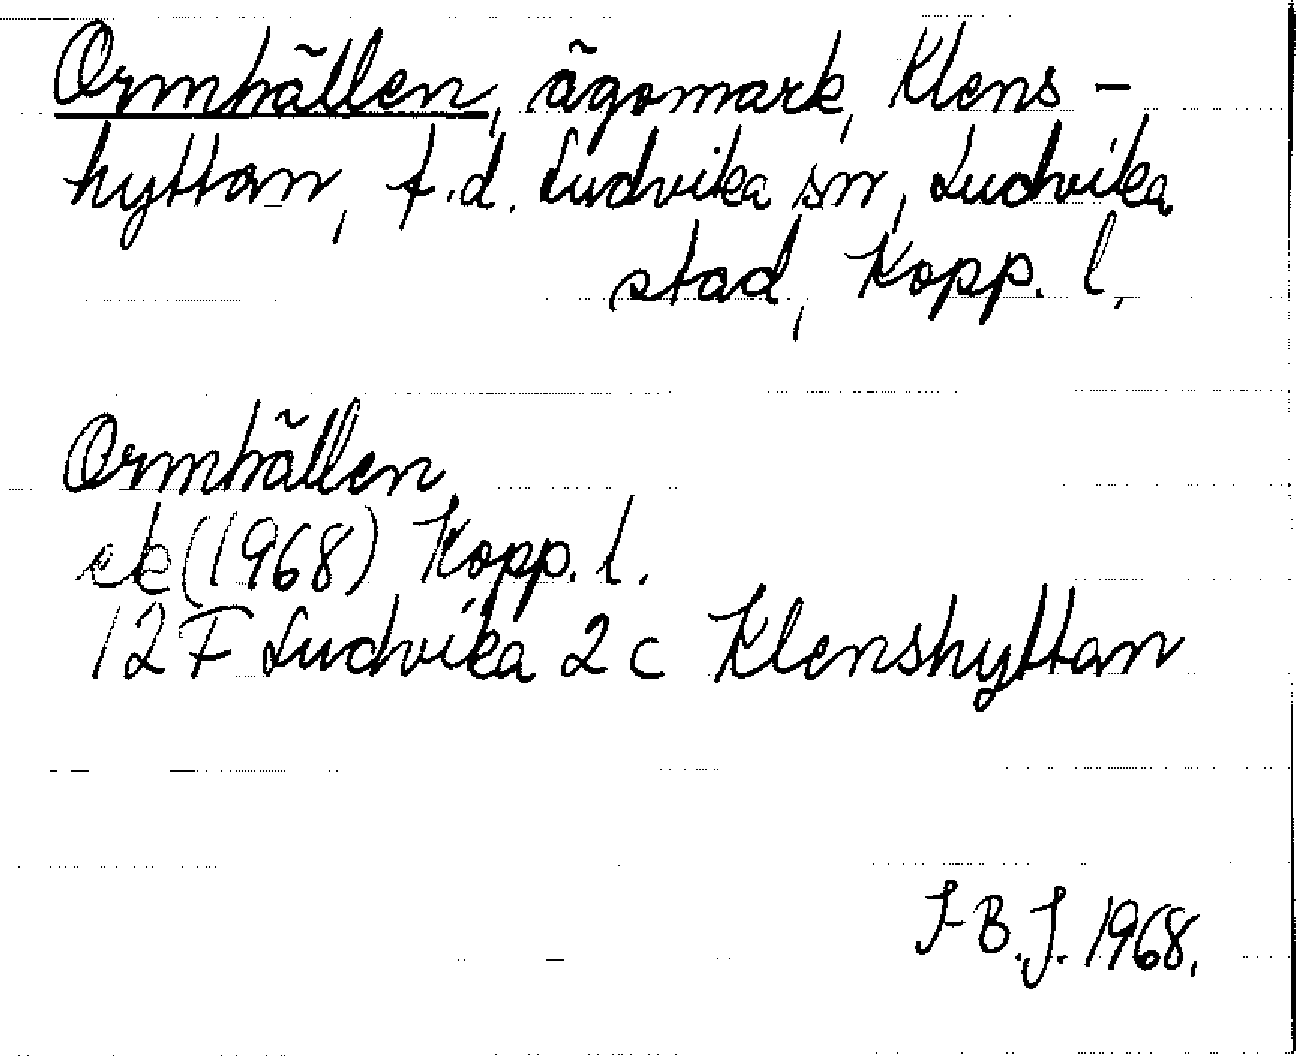 Ormhällen, ägomark, Klens-
hyttan, f.d. Ludvika sn, Ludvika
stad, Kopp. l.
Ormhällen
ek (1968) Kopp. l.
12 F Ludvika 2 c Klenshyttan
F B.J. 1968.